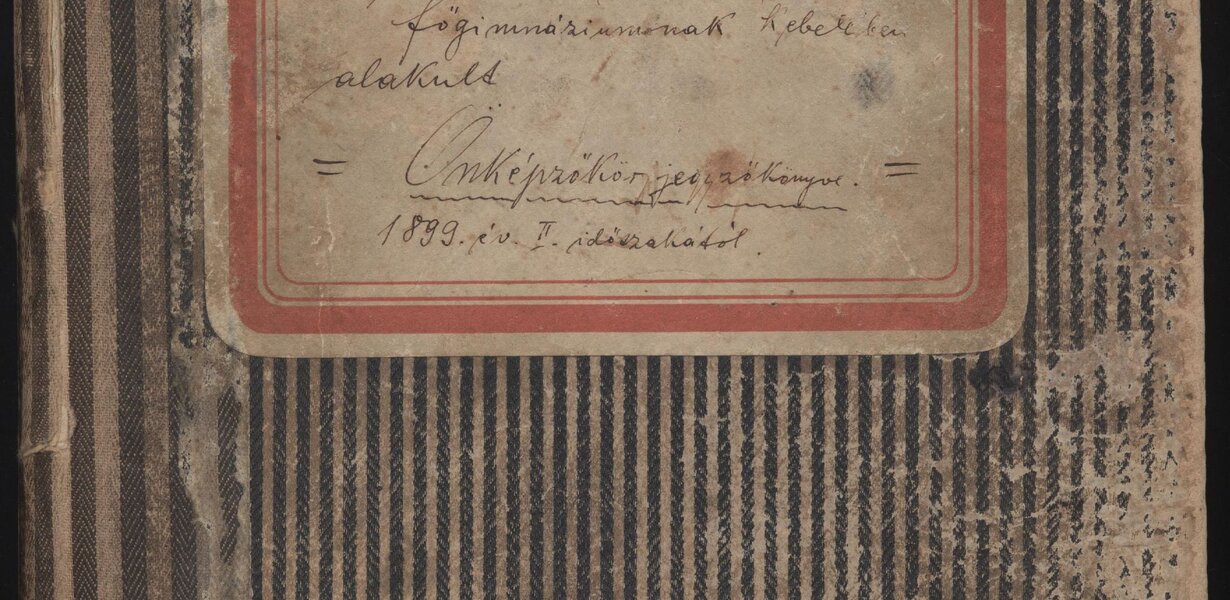 főgimnáziumának kebelében
alakult
= Önképzőkör jegyzőkönyve. =
1899. év. II. időszakától